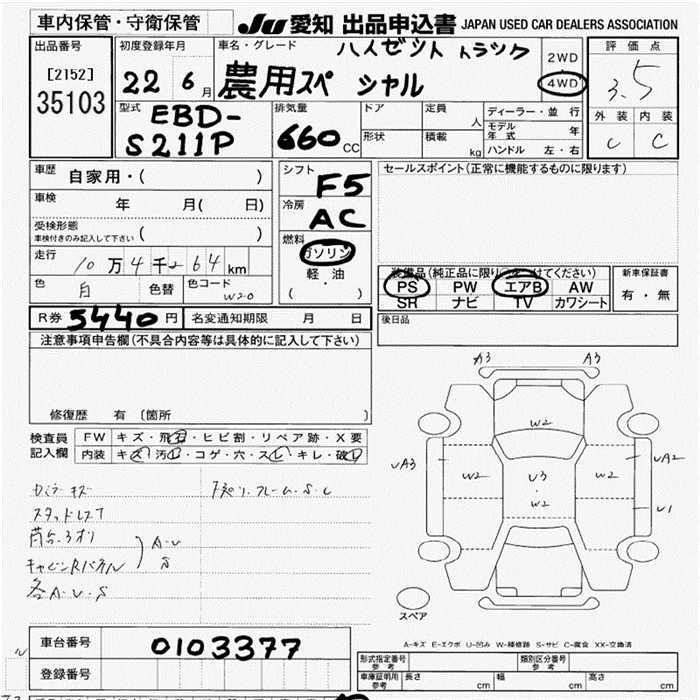 車内保管・守衛保管
JU 愛知 出品申込書 JAPAN USED CAR DEALERS ASSOCIATION
出品番号
[2152]
35103
初度登録年月
22年 6月
車名・グレード
ハイゼット トラック
農用スペシャル
2WD
4WD
評価点
3.5
外装 内装
C C
型式
EBD-
S211P
排気量
660 CC
ドア
形状
定員 人
積載 kg
ディーラー・並行
モデル年式 年
ハンドル 左・右
車歴 自家用・( )
車検 年 月( 日)
受検形態
車検付きのみ記入して下さい ( )
走行 10万4千264 km
色 白 色替 色コード W20
シフト
F5
冷房
AC
燃料
ガソリン
軽・油
( ・ )
セールスポイント(正常に機能するものに限ります)
装備品(純正品に限り○をつけてください)
PS PW エアB AW
SR ナビ TV カワシート
新車保証書
有・無
R券 5440円 名変通知期限 月 日
後日品
注意事項申告欄(不具合内容等は具体的に記入して下さい)
修復歴 有 〔箇所 〕
検査員
記入欄
FW キズ・飛石・ヒビ割・リペア跡・X要
内装 キズ・汚レ・コゲ・穴・スレ・キレ・破レ
スタッドレス
荷台
キャビンRパネル
A・U
S
各A・U・S
フレーム・S・C
A3 A3
W2
UA3 W2 U3 W2 UA2
W2
U1
スペア
A-キズ E-エクボ U-凹み W-補修跡 S-サビ C-腐食 XX-交換済
車台番号 0103377
登録番号
形式指定番号
参考
類別区分番号
参考
車庫証明用
参考
長さ cm 幅 cm 高さ cm